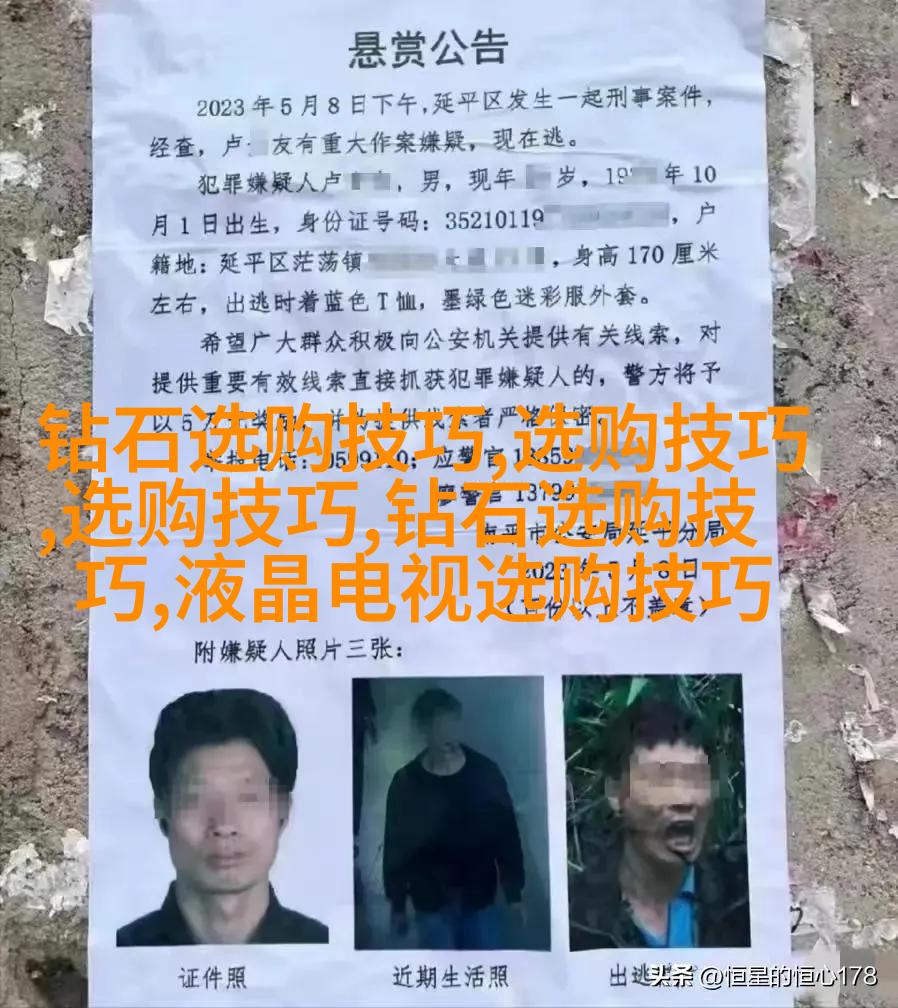 悬赏公告
2023年5月8日下午,延平区发生一起刑事案件,
经查,卢 友有重大作案嫌疑,现在逃。
犯罪嫌疑人卢 ,男,现年 岁,19 年10
月1日出生,身份证号码:35210119 ,户
籍地:延平区茫荡镇 ,身高170厘米
左右,出逃时着蓝色T恤,墨绿色迷彩服外套。
希望广大群众积极向公安机关提供有关线索,对
提供重要有效线索直接抓获犯罪嫌疑人的,警方将予
以5万
钻石选购技巧,选购技巧
电话: 应警官
,选购技巧,钻石选购技
警官 13799
南平市公安局延平分局
巧,液晶电视选购技巧
附嫌疑人照片三张:
证件照
近期生活照
出逃
头条 @恒星的恒心178